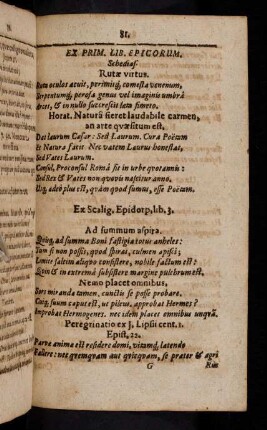 81.
EX PRIM. LIB. EPICORUM.
Schedias.
Rutæ virtus.
Ruta oculos acuit, perimitq́; comesta venenum,
Serpentumq́; perosa genus vel imaginis umbrâ
Arcet, & in nullo succrescit læta fimeto.
Horat. Naturâ fieret laudabile carmen,
an arte quæsitum est.
Det laurum Cæsar: Sed Laurum. Cura Poëtam
Et Natura facit. Nec vatem Laurus honestat,
Sed Vates Laurum.
Consul, Proconsul Româ sit in urbe quotannis:
Sed Rex & Vates non quovis nascitur anno,
Usq́; adeò plus est, quàm quod sumus, esse Poëtam.
Ex Scalig. Epidorp, lib. 3.
Ad summum aspira.
Quisq́; ad summa Boni fastigia totus anheles:
Tam si non possis, quod spiras, culmen apisci:
Limite saltem aliquo consistere, nobile factum est:
Quin & in extremâ subsistere margine pulchrum est.
Nemo placet omnibus.
Sors miranda tamen, cunctis se posse probare.
Cuiq́; suum caput est, ut pileus. approbat Hermes?
Improbat Hermogenes. nec idem placet omnibus unquā.
Peregrinatio ex J. Lipsii cent. 1.
Epist. 22.
Parvæ animæ est residere domi, vitamq́; latendo
Fallere: nec quemquam aut quicquam, se præter & agri
G